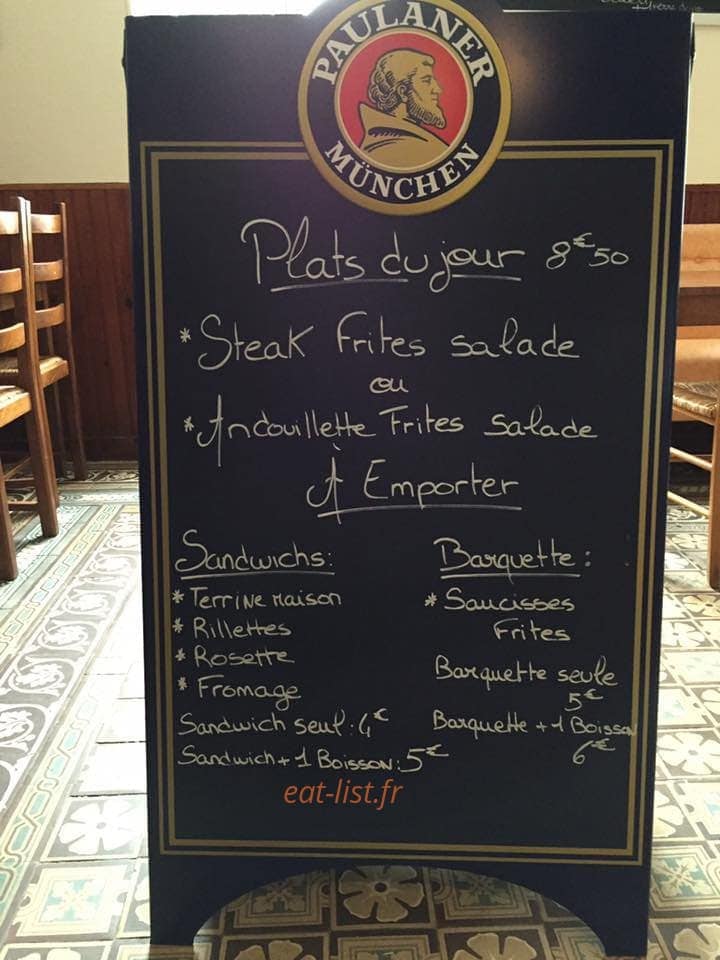 PAULANER
MÜNCHEN
Plats du jour 8€50
* Steak Frites salade
ou
* Andouillette Frites salade
À Emporter
Sandwichs:
* Terrine maison
* Rillettes
* Rosette
* Fromage
Sandwich seul: 4€
Sandwich + 1 Boisson: 5€
Barquette:
* Saucisses
Frites
Barquette seule
5€
Barquette + 1 Boisson
6€
eat-list.fr